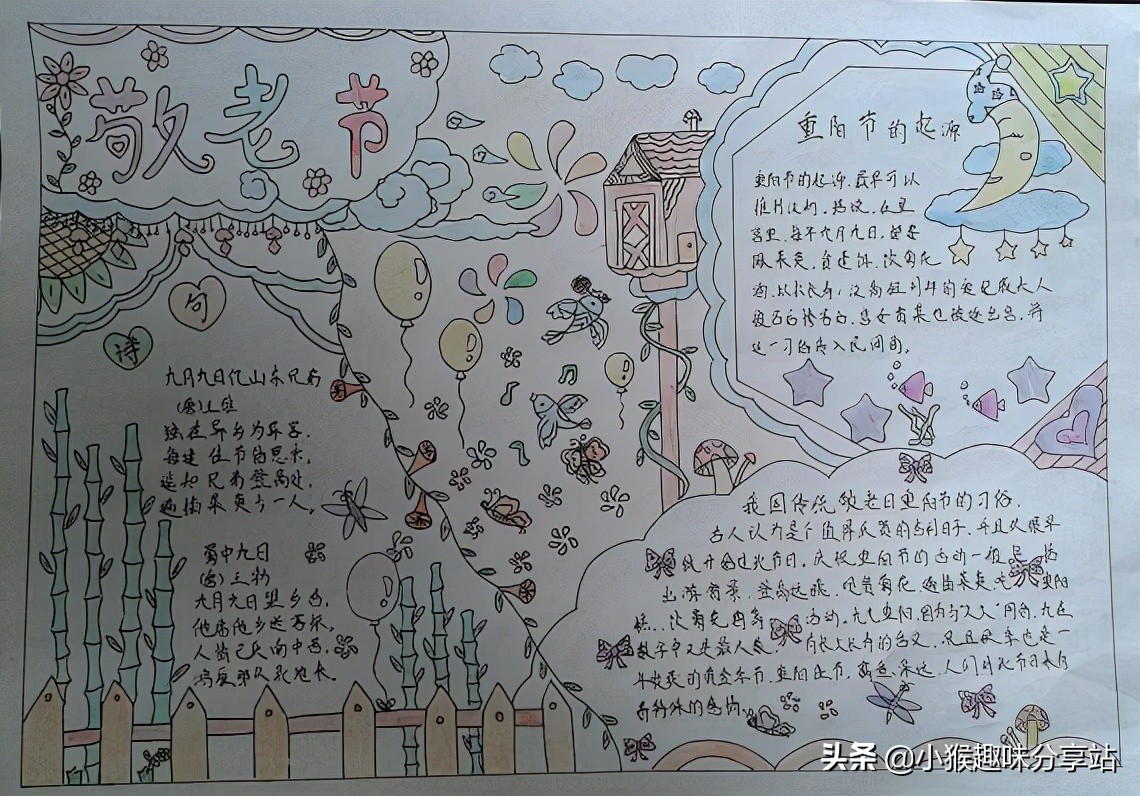 敬老节
重阳节的起源
重阳节的起源,最早可以
推到汉初。据说,在皇
宫里,每年九月九日,都要
佩茱萸,食蓬饵,饮菊花
酒,以求长寿,汉高祖刘邦的爱妃戚夫人
被吕后惨害后,宫女贾某也被逐出宫,将
这一习俗传入民间的。
诗
句
九月九日忆山东兄弟
(唐)王维
独在异乡为异客,
每逢佳节倍思亲,
遥知兄弟登高处,
遍插茱萸少一人,
蜀中九日
(唐)王勃
九月九日望乡台,
他席他乡送客杯,
人今已厌南中苦,
鸿雁那从北地来。
我国传统敬老日重阳节的习俗.
古人认为是个值得庆贺的吉利日子,并且从很早
就开始过此节日,庆祝重阳节的活动一般包括
出游赏景、登高远眺、观赏菊花、遍插茱萸、吃重阳
糕、饮菊花酒等活动,九九重阳,因为与久久同音,九在
数字中又是最大数,有长久长寿的含义,况且秋季也是一
年收获的黄金季节,重阳佳节,寓意深远,人们对此节日有着
有特殊的感情
头条 @小猴趣味分享站